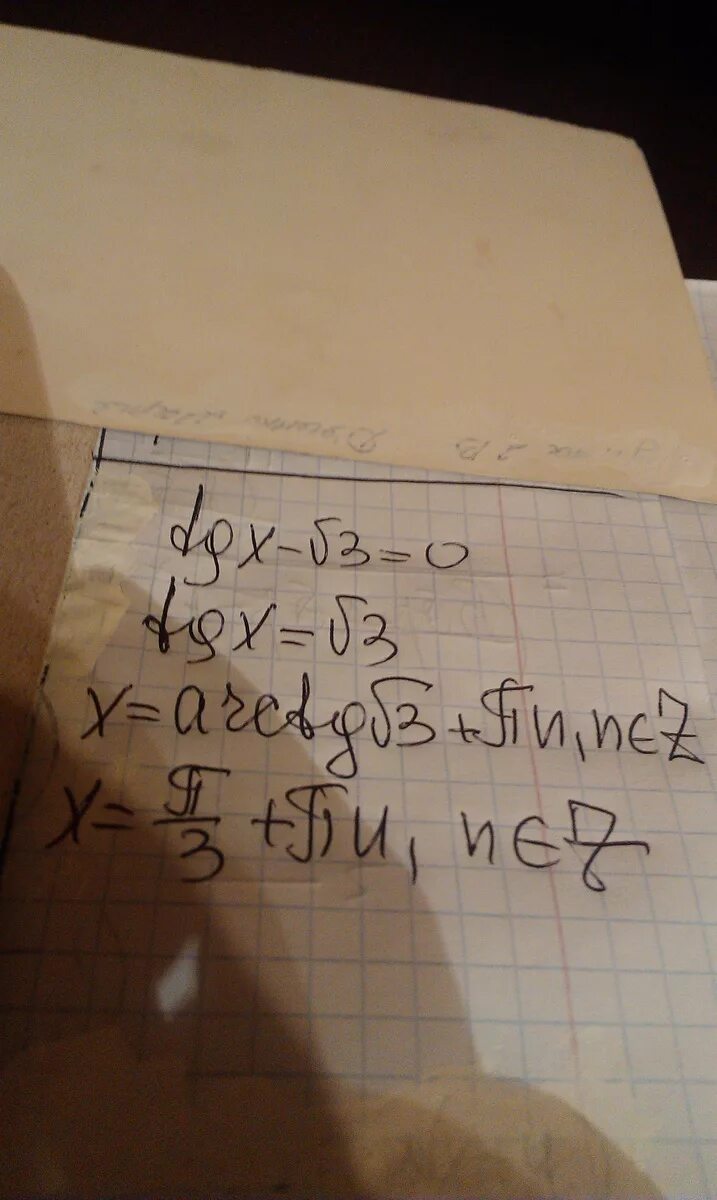 tg x - √3 = 0
tg x = √3
x = arctg √3 + πn, n ∈ Z
x = π/3 + πn, n ∈ Z